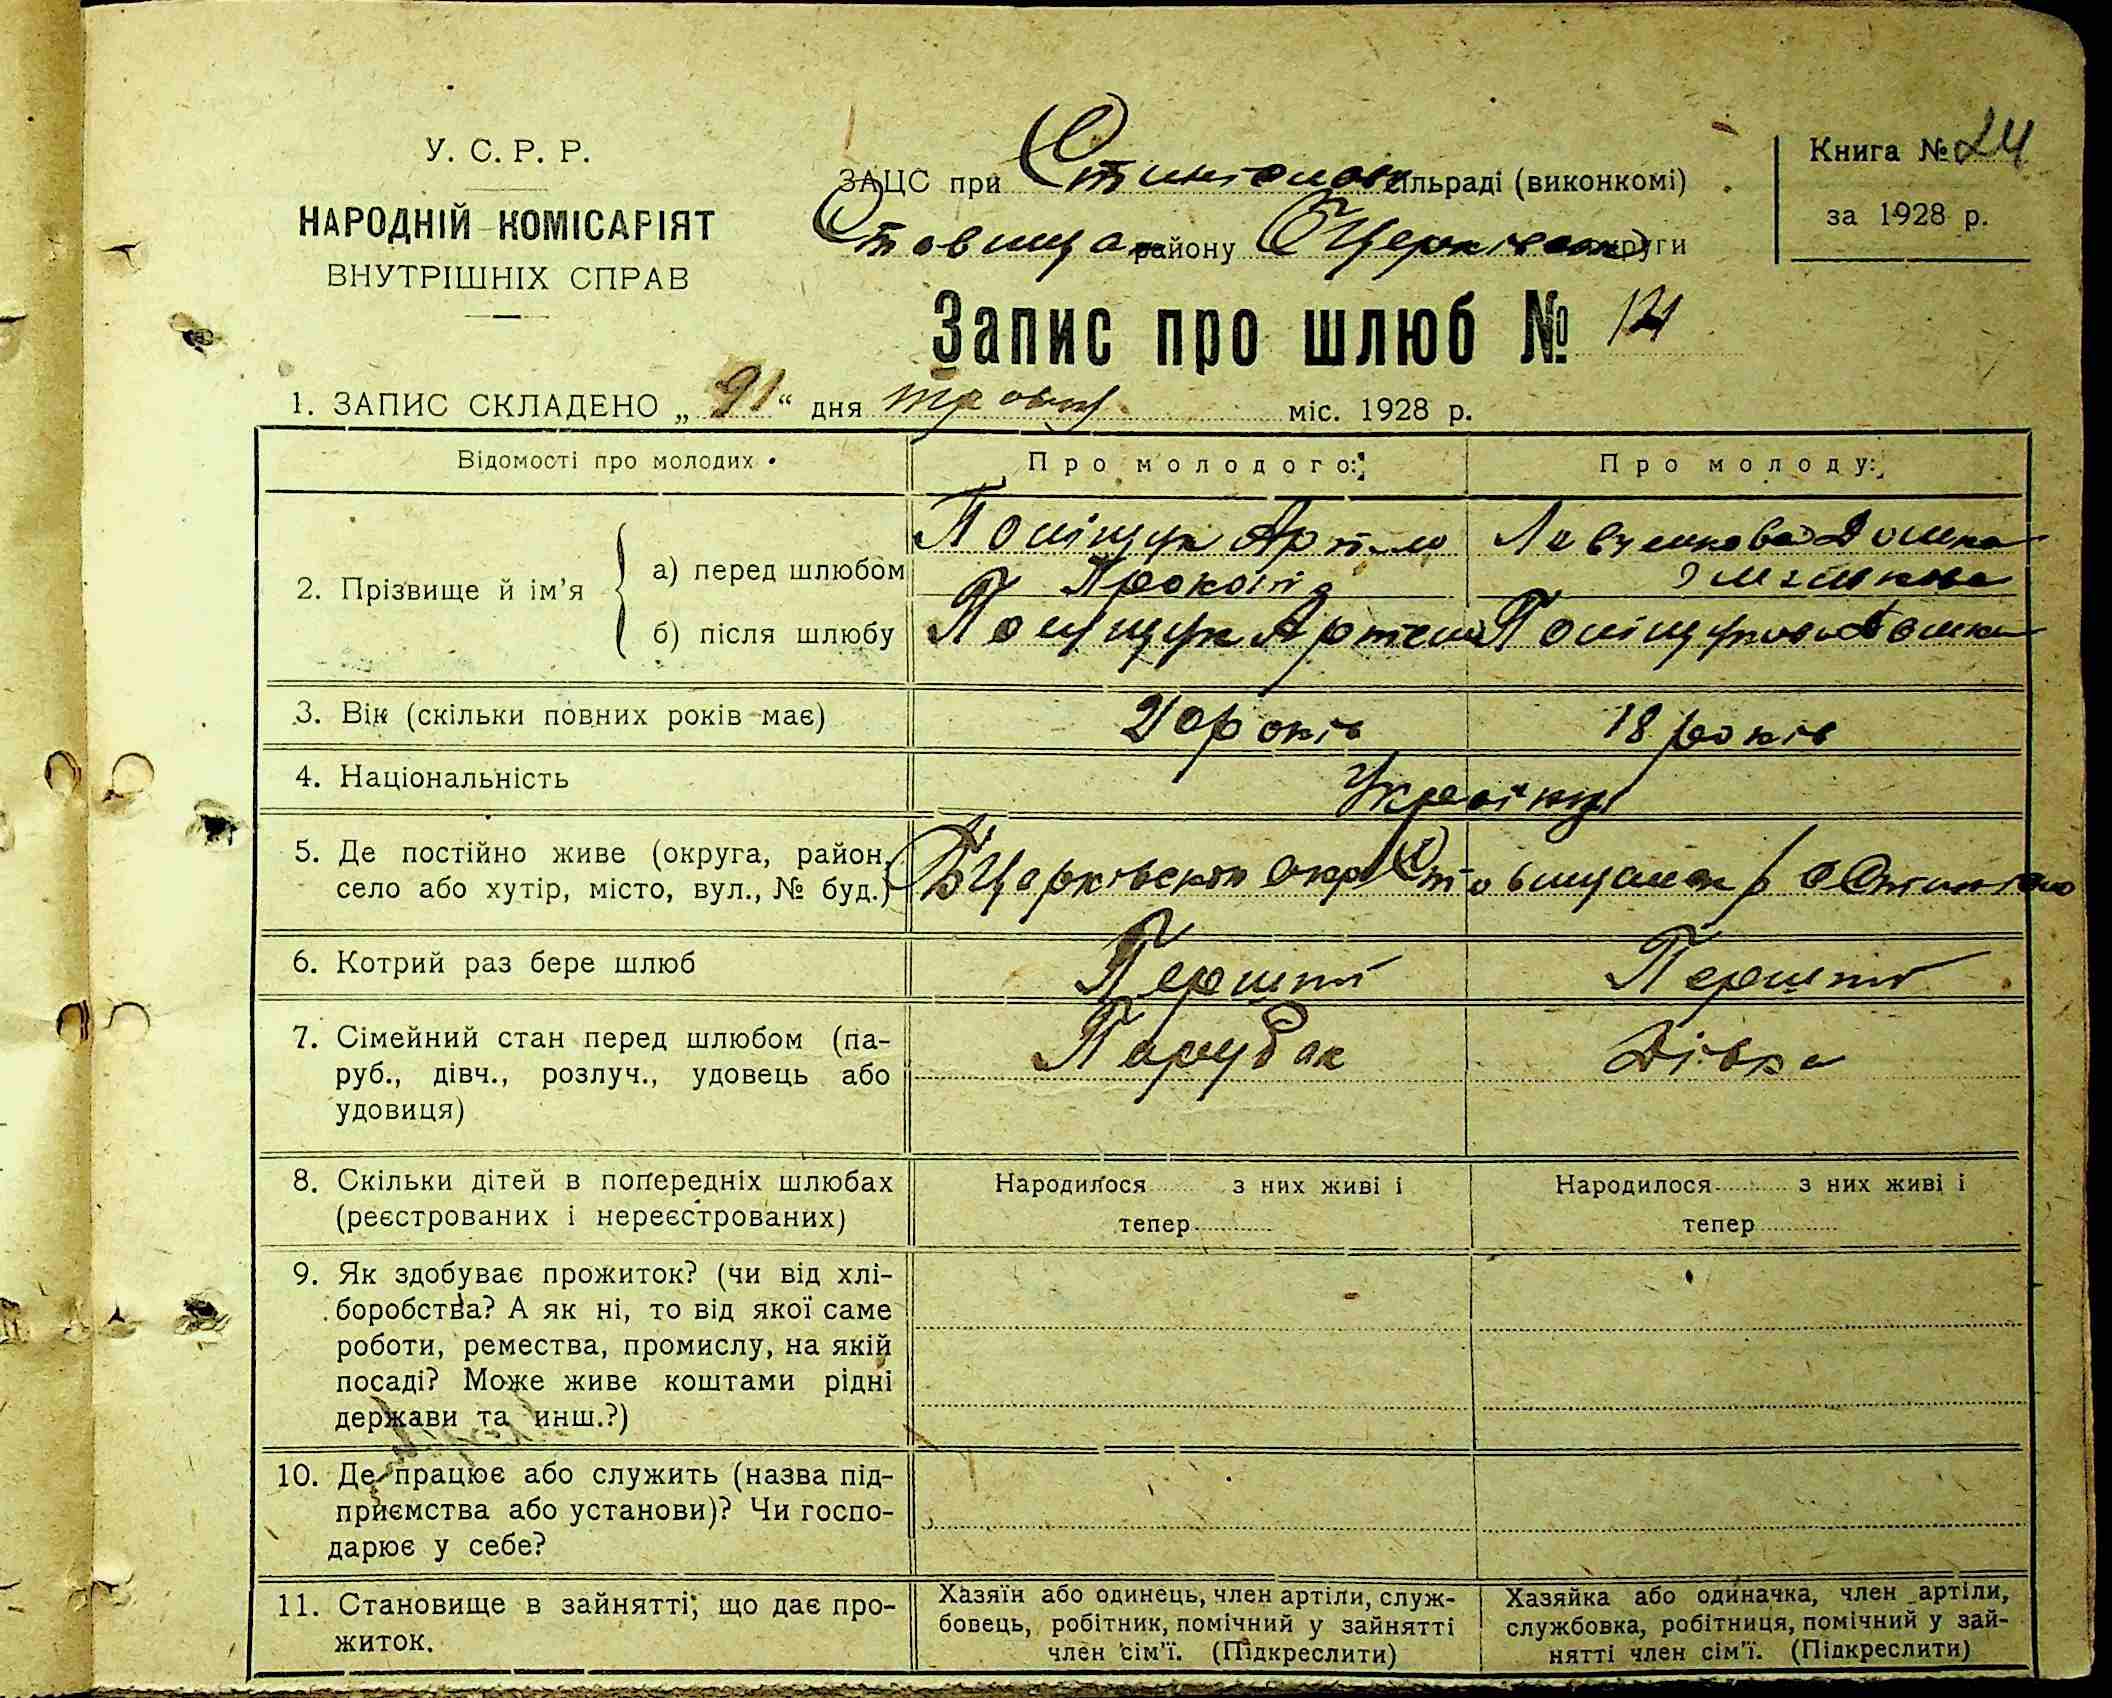 У. С. Р. Р.
НАРОДНІЙ КОМІСАРІЯТ
ВНУТРІШНІХ СПРАВ
ЗАЦС при сільраді (виконкомі)
району округи
Книга № 24
за 1928 р.
Запис про шлюб №
1. ЗАПИС СКЛАДЕНО „ “ дня травня міс. 1928 р.
Відомості про молодих
Про молодого:
Про молоду:
2. Прізвище й ім’я
а) перед шлюбом
Поліщук Артем
Прокопів
б) після шлюбу
Поліщук Артем
3. Вік (скільки повних років має)
20 років
18 років
4. Національність
Українці
5. Де постійно живе (округа, район,
село або хутір, місто, вул., № буд.)
6. Котрий раз бере шлюб
Перший
Перший
7. Сімейний стан перед шлюбом (па-
руб., дівч., розлуч., удовець або
удовиця)
Парубак
Дівка
8. Скільки дітей в попередніх шлюбах
(реєстрованих і нереєстрованих)
Народилося з них живі і
тепер
Народилося з них живі і
тепер
9. Як здобуває прожиток? (чи від хлі-
боробства? А як ні, то від якої саме
роботи, ремества, промислу, на якій
посаді? Може живе коштами рідні
держави та инш.?)
10. Де працює або служить (назва під-
приємства або установи)? Чи госпо-
дарює у себе?
11. Становище в зайнятті, що дає про-
житок.
Хазяїн або одинець, член артіли, служ-
бовець, робітник, помічний у зайнятті
член сім’ї. (Підкреслити)
Хазяйка або одиначка, член артіли,
службовка, робітниця, помічний у зай-
нятті член сім’ї. (Підкреслити)